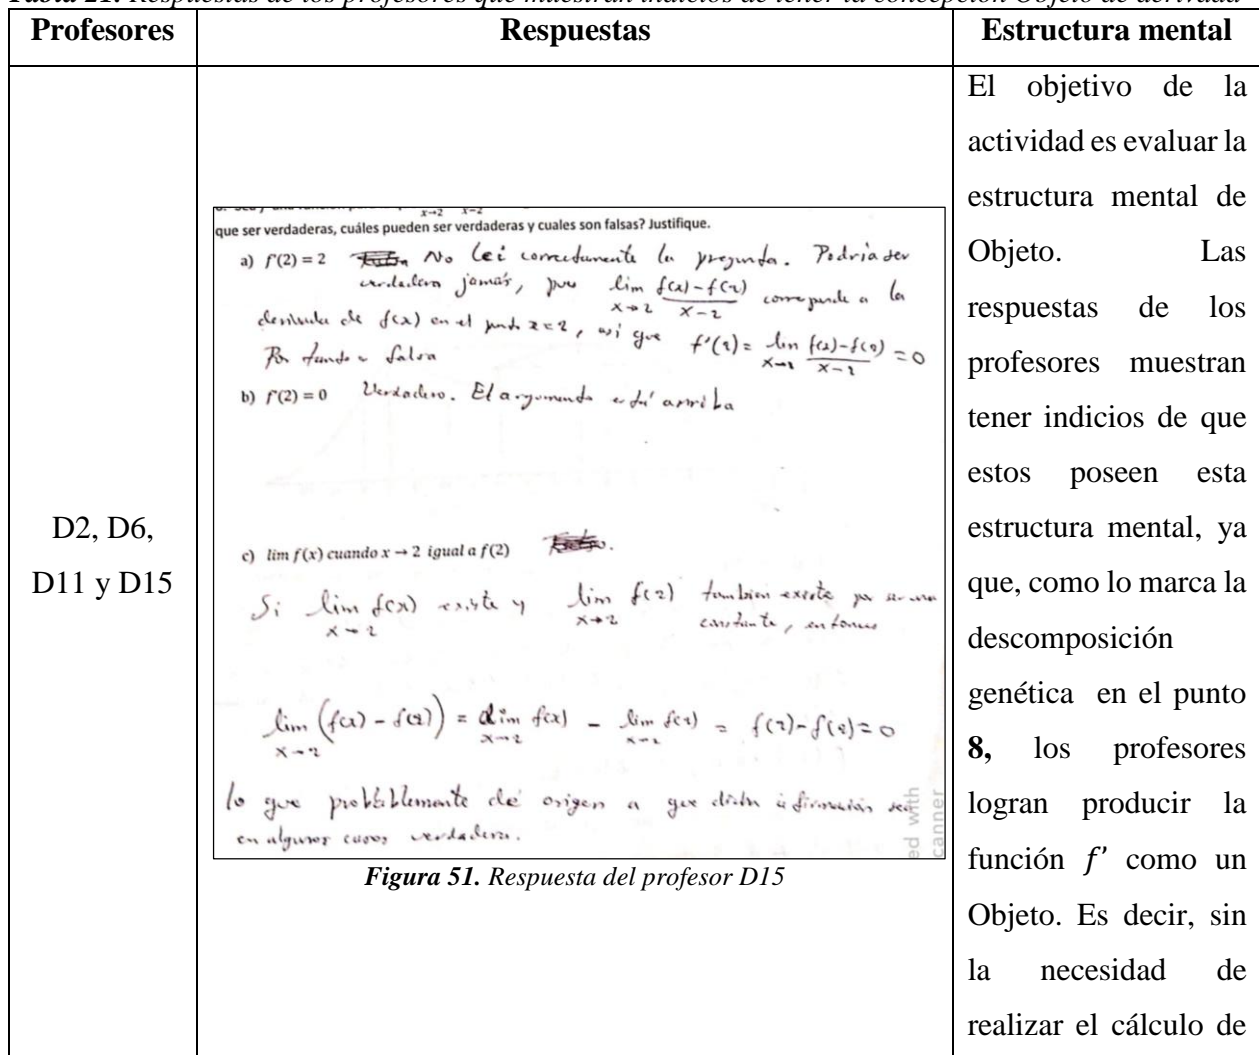 Tabla 21. Respuestas de los profesores que muestran indicios de tener la concepción Objeto de derivada
Profesores
Respuestas
Estructura mental
D2, D6,
D11 y D15
x→2 x−2
que ser verdaderas, cuáles pueden ser verdaderas y cuales son falsas? Justifique.
a) f'(2) = 2 No leí correctamente la pregunta. Podría ser
verdadera jamás, pues lim x→2 f(x)-f(2) / x-2 corresponde a la
derivada de f(x) en el punto x=2, así que f'(2) = lim x→2 f(x)-f(2) / x-2 = 0
Por tanto falsa
b) f'(2) = 0 Verdadero. El argumento está arriba
c) lim f(x) cuando x → 2 igual a f(2)
Si lim x→2 f(x) existe y lim x→2 f(2) tambien existe por ser una
constante, entonces
lim x→2 (f(x) - f(2)) = lim x→2 f(x) - lim x→2 f(2) = f(2)-f(2)=0
lo que probablemente dé origen a que dicha afirmación sea
en algunos casos verdadera.
ed with
canner
Figura 51. Respuesta del profesor D15
El objetivo de la
actividad es evaluar la
estructura mental de
Objeto. Las
respuestas de los
profesores muestran
tener indicios de que
estos poseen esta
estructura mental, ya
que, como lo marca la
descomposición
genética en el punto
8, los profesores
logran producir la
función f' como un
Objeto. Es decir, sin
la necesidad de
realizar el cálculo de